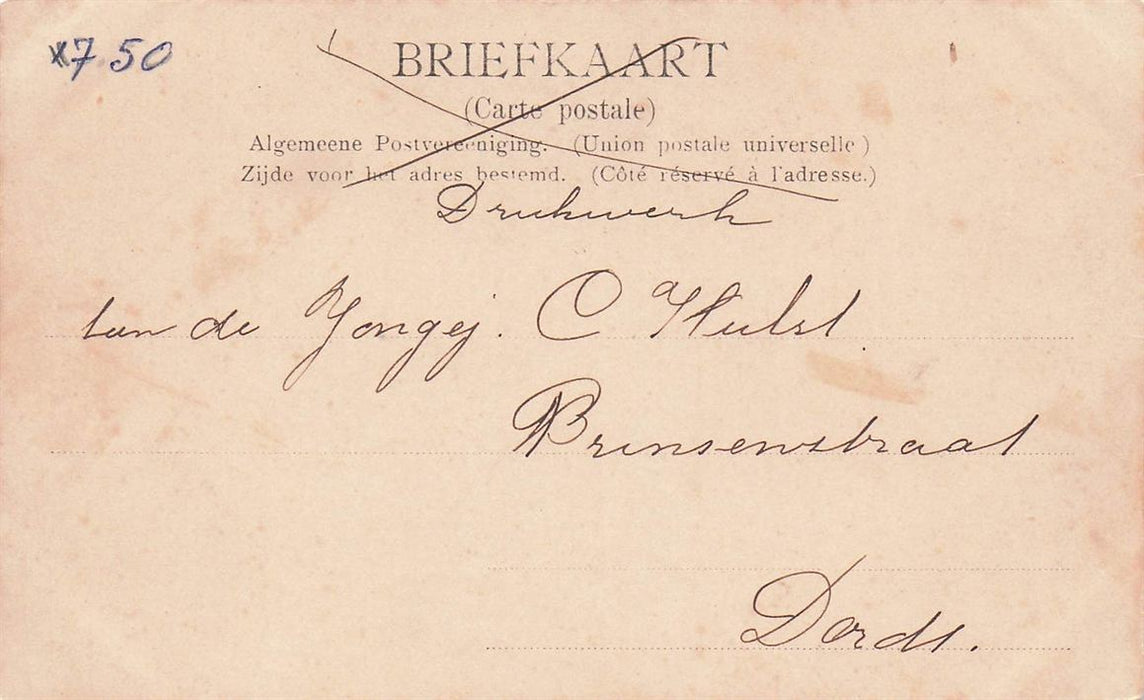 x7.50
BRIEFKAART
(Carte postale)
Algemeene Postvereeniging. (Union postale universelle)
Zijde voor het adres bestemd. (Côté réservé à l'adresse.)
Drukwerk
aan de Jongej. C Hulst
Prinsenstraat
Dordt.